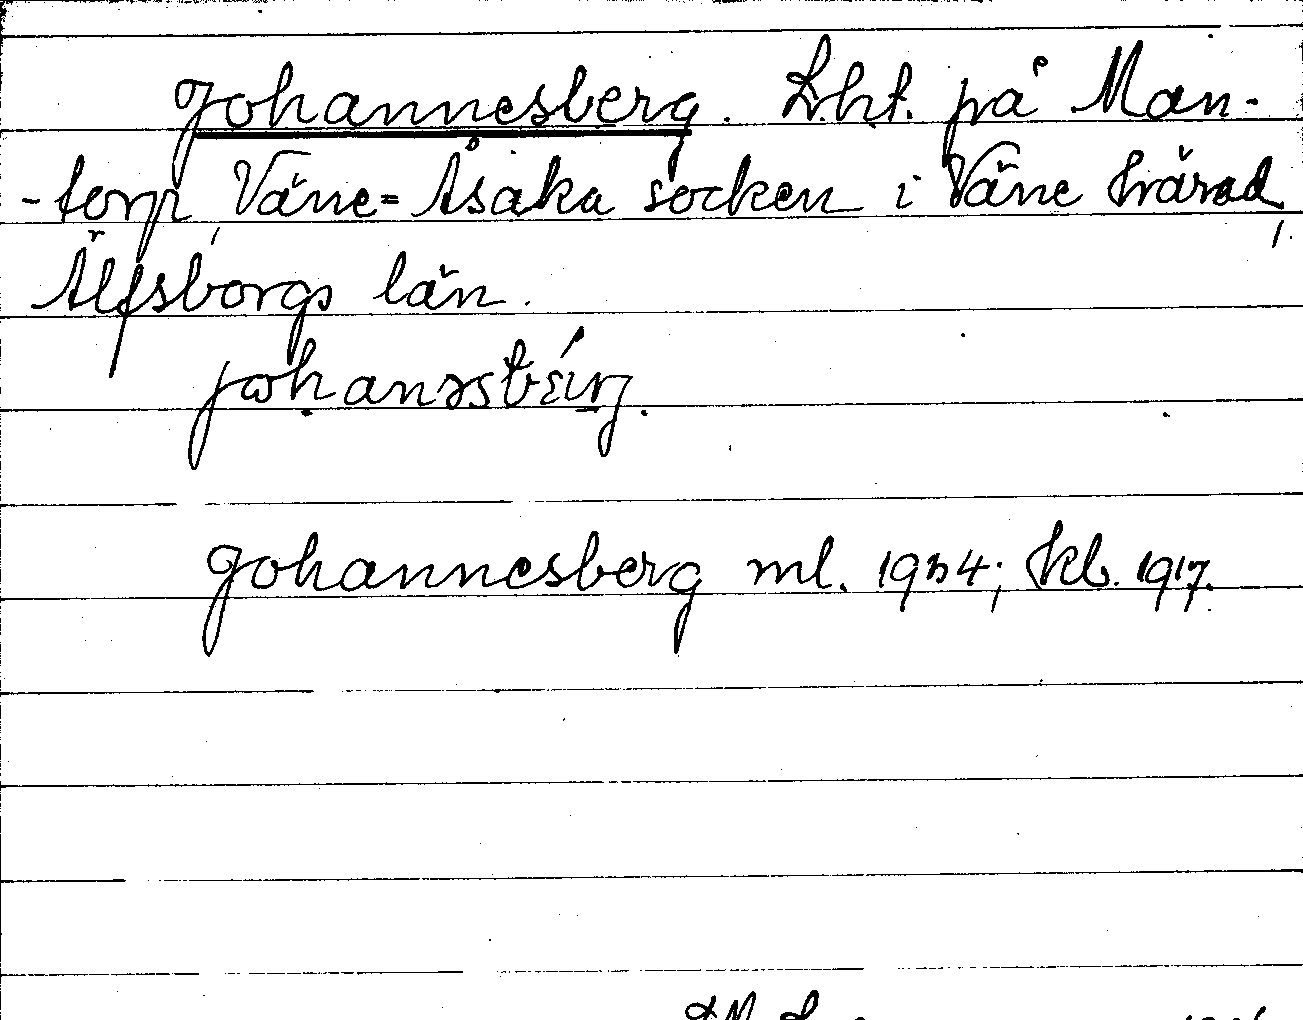 Johannesberg. Lht. på Man-
-torp, Väne=Åsaka socken i Väne härad,
Älfsborgs län.
Johannesberg ml. 1934; kb. 1917.